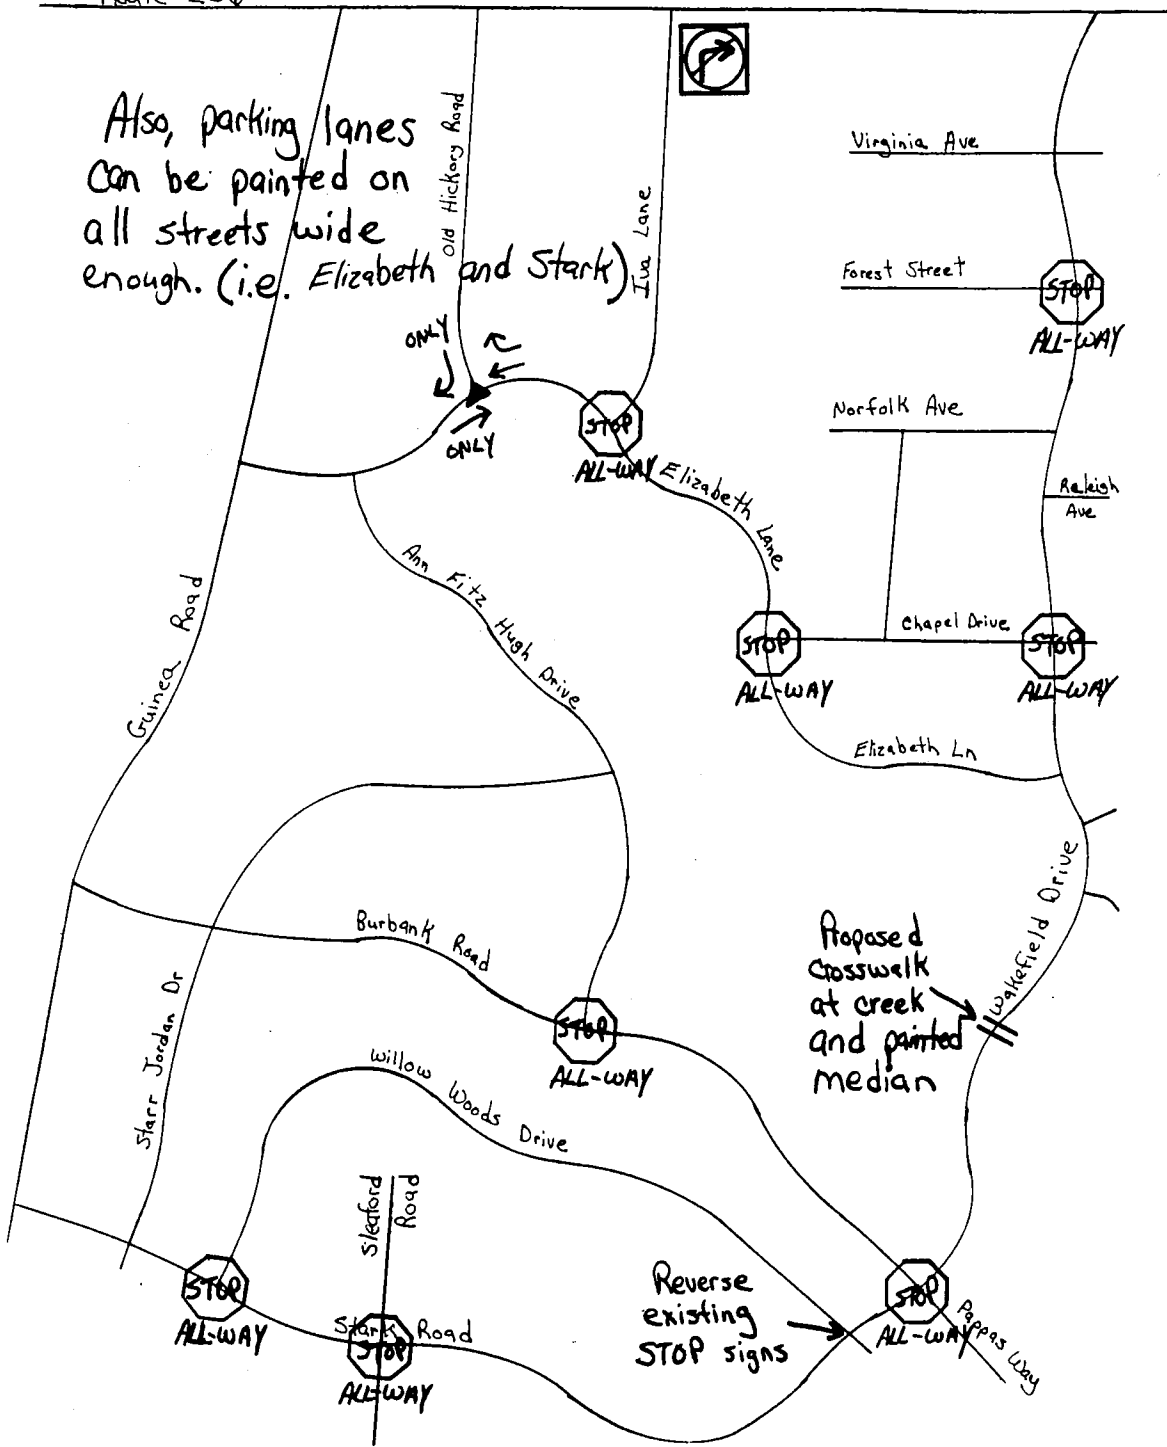 Also, parking lanes
can be painted on
all streets wide
enough. (i.e. Elizabeth and Stark)
Old Hickory Road
Iva Lane
Virginia Ave
Forest Street
STOP
ALL-WAY
ONLY
ONLY
STOP
ALL-WAY
Norfolk Ave
Elizabeth Lane
Raleigh
Ave
Ann Fitz Hugh Drive
Guinea Road
Chapel Drive
STOP
ALL-WAY
STOP
ALL-WAY
Elizabeth Ln
Wakefield Drive
Burbank Road
Proposed
crosswalk
at creek
and painted
median
Starr Jordan Dr
STOP
ALL-WAY
Willow Woods Drive
Sleaford
Road
STOP
ALL-WAY
Stark Road
STOP
ALL-WAY
Reverse
existing
STOP signs
STOP
ALL-WAY
Pappas Way